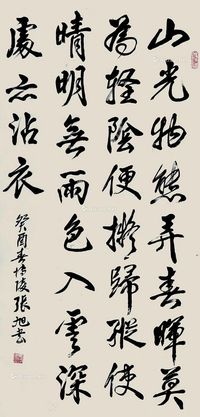 山光物態弄春暉莫
為輕陰便擬歸縱使
晴明無雨色入雲深
處亦沾衣
癸酉春陵張旭书